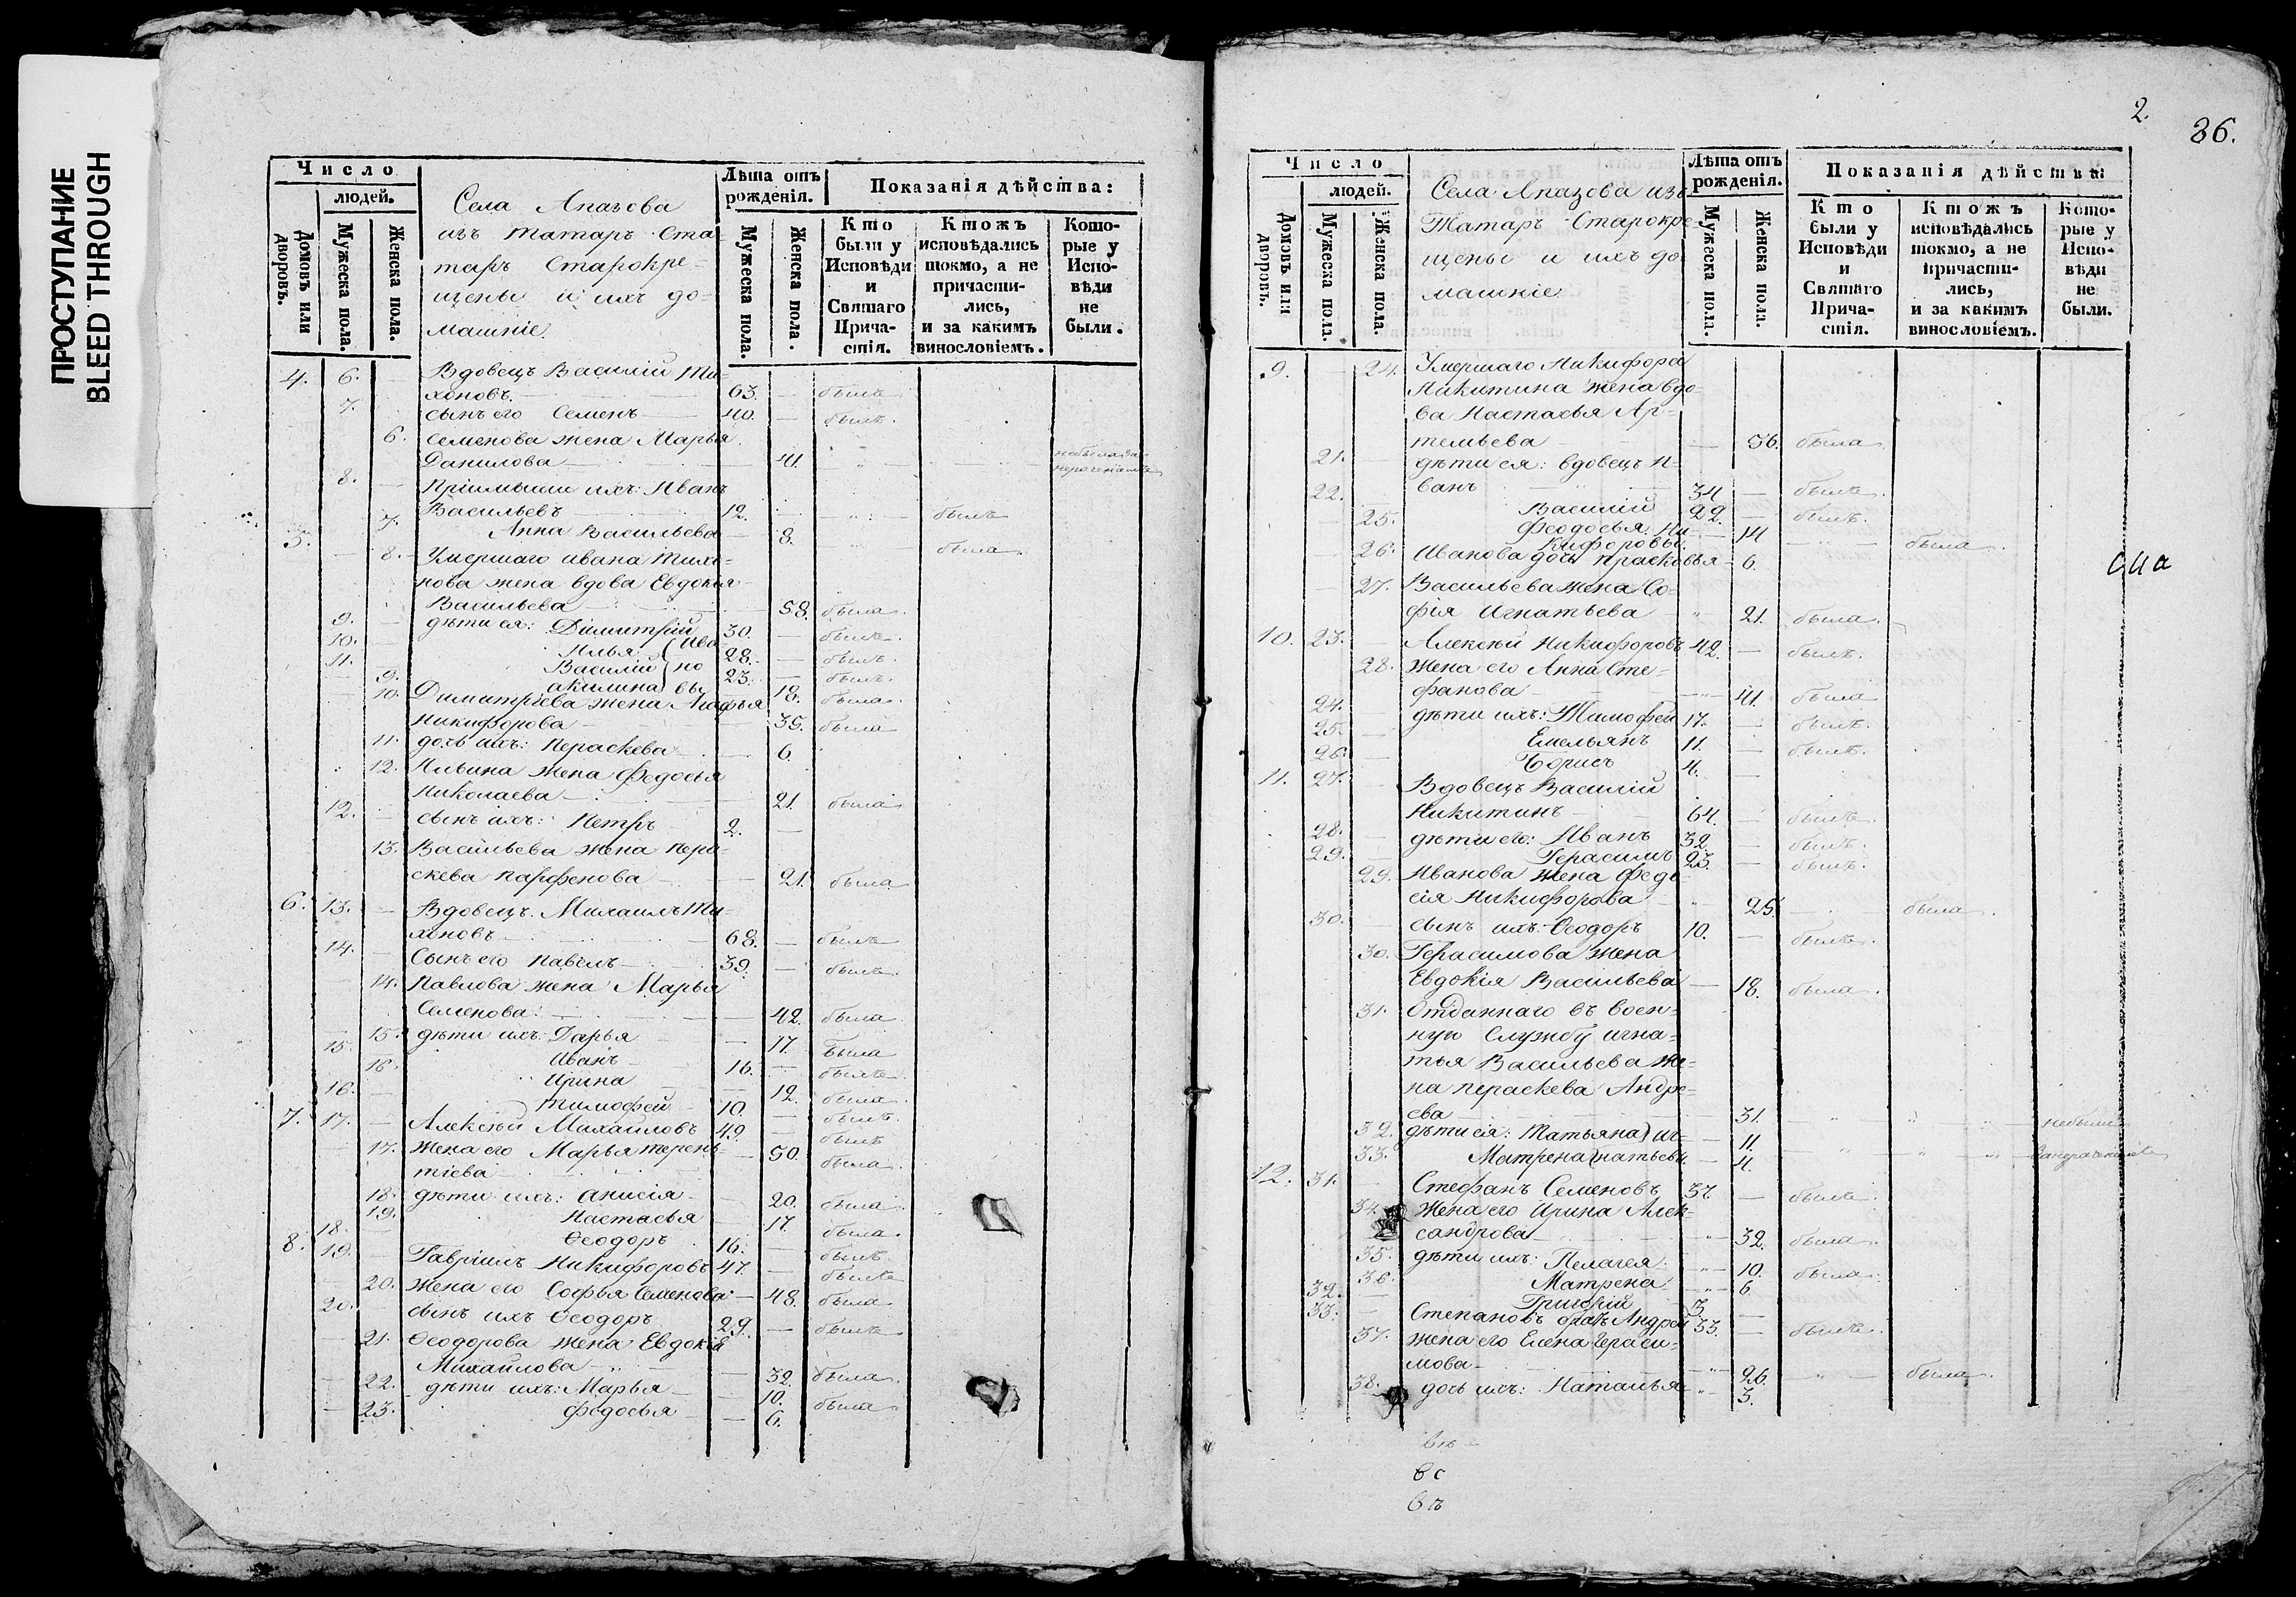 ПРОСТУПАНИЕ
BLEED THROUGH
Число
людей.
Домовъ или дворовъ.
Мужеска пола.
Женска пола.
Села Апазова
изъ Татаръ Ста-
таръ Старокре-
щены и ихъ до-
машніе.
Лѣта отъ рожденія.
Мужеска пола.
Женска пола.
Показанія дѣйства:
Кто были у Исповѣди и Святаго Прича-стія.
Ктожъ исповѣдались токмо, а не причасти-лись, и за какимъ винословіемъ.
Кото-рые у Испо-вѣди не были.
4. 6. Вдовецъ Василій Ти-
хоновъ 63. былъ
7. сынъ его Семенъ 40. былъ.
6. Семенова жена Марья
Данилова 41. небыла за нерачениемъ
8. Пріимыши ихъ: Иванъ
Васильевъ 12. былъ
7. Анна Васильева 8. была
5. 8. Умершаго Ивана Тихо-
нова жена вдова Евдокія
Васильева 58. была.
9. дѣти ея: Димитрій 30. былъ.
10. Илья (Ива 28. былъ.
11. Василій но 23. былъ.
9. акилина вы 18. была.
10. Димитріева жена Агафья
Никифорова 35. была
11. дочь ихъ: Пераскева 6.
12. Ильина жена Федосья
Николаева 21. была
12. сынъ ихъ: Петръ 2.
13. Васильева жена Пера-
скева Парфенова 21. была
6. 13. Вдовецъ Михаилъ Ти-
хоновъ 68. былъ
14. Сынъ его Павелъ 39. былъ.
14. Павлова жена Марья
Семенова: 42. была
15. дѣти ихъ: Дарья 17. была
15. Иванъ 16. былъ.
16. Ирина 12. была.
16. Тимофей 10. былъ.
7. 17. Алексѣй Михайловъ 49. былъ
17. Жена его Марья Терень-
тіева 50. была.
18. дѣти ихъ: Анисія 20. была.
19. Настасья 17. была.
18. Ѳеодоръ 16. былъ.
8. 19. Гавріилъ Никифоровъ 47. былъ
20. Жена его Софья Семенова 48. была
20. сынъ ихъ Ѳеодоръ 29. былъ
21. Ѳеодорова жена Евдокія
Михайлова 32. была.
22. дѣти ихъ: Марья 10. была
23. Федосья 6.
2.
86.
Число
людей.
Домовъ или дворовъ.
Мужеска пола.
Женска пола.
Села Апазова изъ
Татаръ Старокре-
щены и ихъ до-
машніе
Лѣта отъ рожденія.
Мужеска пола.
Женска пола.
Показанія дѣйства:
Кто были у Исповѣди и Святаго Прича-стія.
Ктожъ исповѣдались токмо, а не причасти-лись, и за какимъ винословіемъ.
Кото-рые у Испо-вѣди не были.
9. 24. Умершаго Никифора
Никитина жена вдо-
ва Настасья Ар-
темьева 56. была
21. дѣти ея: вдовецъ И-
ванъ 34 былъ.
22. Василій 22. былъ.
25. Феодосья Ни-
кифоровы 14 была.
26. Иванова дочь Прасковья 6.
27. Васильева жена Со-
фія Игнатьева 21. была.
10. 23. Алексѣй Никифоровъ 42. былъ.
28. Жена его Анна Сте-
фанова 41. была
24. дѣти ихъ: Тимофей 17. былъ.
25. Емельянъ 11. былъ.
26. Борисъ 4.
11. 27. Вдовецъ Василій
Никитинъ 64. былъ.
28. дѣти его: Иванъ 32. былъ.
29. Герасимъ 23. былъ.
29. Иванова жена Федо
сія Никифорова 25. была.
30. сынъ ихъ Ѳеодоръ 10. былъ.
30. Герасимова жена
Евдокія Васильева 18. была.
31. Отданнаго въ воен-
ную Службу игна-
тья Васильева же-
на Пераскева Андре-
ева 31. небыли
32. дѣти ея: Татьяна иг- 11.
33. Матрена натьевы 4. занерачениемъ
12. 31. Стефанъ Семеновъ 37. былъ.
34. Жена его Ирина Алек-
сандрова 32. была.
35. дѣти ихъ: Пелагея 10. была.
36. Матрена 6.
32. Григорій 3.
33. Степановъ братъ Андрей 33. былъ.
37. Жена его Елена Гераси-
мова 26. была.
38. дочь ихъ: Наталья 3.